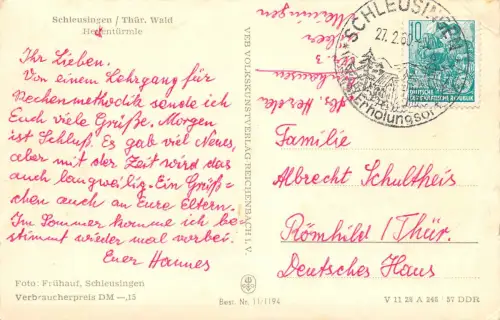 Schleusingen / Thür. Wald
Hexentürmle
Ihr Lieben.
Von einem Lehrgang für
Rechenmethodik sende ich
Euch viele Grüße. Morgen
ist Schluß. Es gab viel Neues,
aber mit der Zeit wird das
auch langweilig. Ein Grüß-
chen auch an Eure Eltern.
Im Sommer komme ich be-
stimmt wieder mal vorbei.
Euer Hannes
Foto: Frühauf, Schleusingen
Verbraucherpreis DM —,15
VEB VOLKSKUNSTVERLAG REICHENBACH i. V.
Best. Nr. 11/1194
Meiningen
SCHLEUSINGEN
27. 2. 6
Erholungsort
10
DEUTSCHE
DEMOKRATISCHE REPUBLIK
Familie
Albrecht Schultheis
Römhild/Thür.
Deutsches Haus
V 11 28 A 248 57 DDR